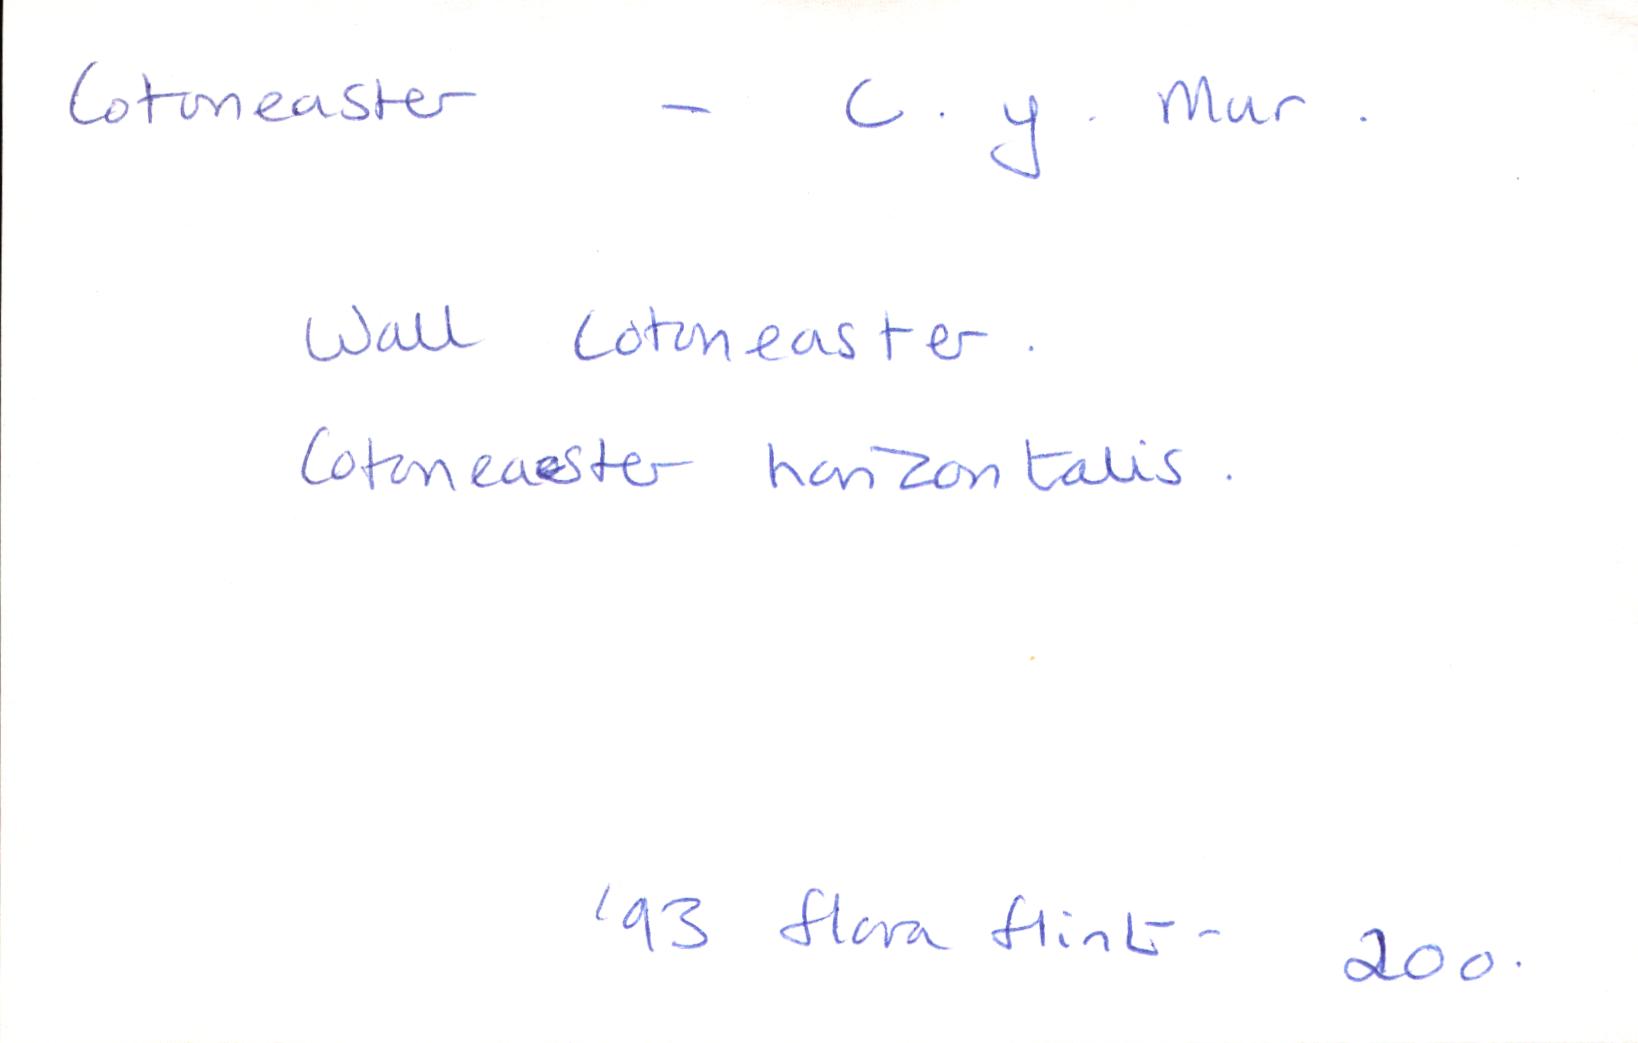 Cotoneaster - C. y. Mur.
Wall Cotoneaster.
Cotoneaster horizontalis.
'93 flora flint - 200.